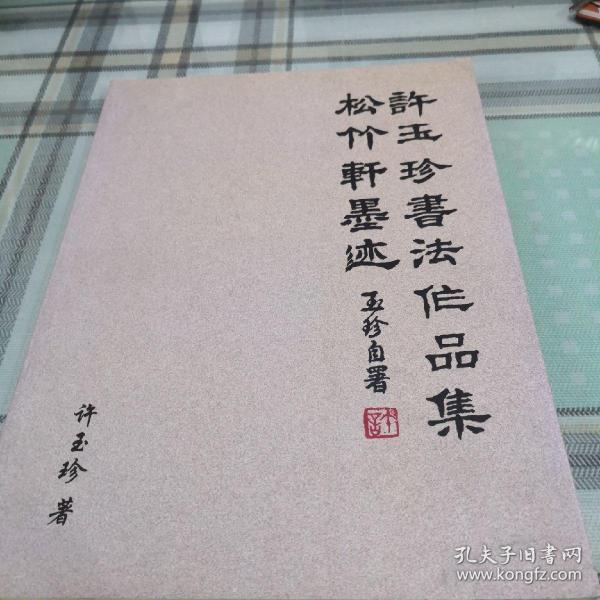 許玉珍書法作品集
松竹軒墨迹
玉珍自署
許
许玉珍 著
孔夫子旧书网
www.kongfz.com